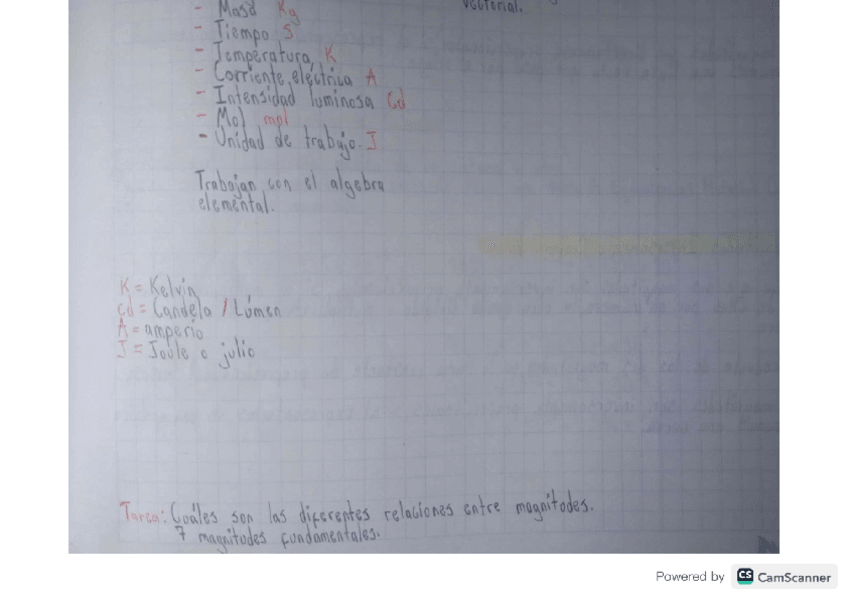 - Masa Kg
vectorial.
- Tiempo S
- Temperatura K
- Corriente eléctrica A
- Intensidad luminosa Cd
- Mol mol
- Unidad de trabajo. J
Trabajan con el algebra
elemental.
K = Kelvin
Cd = Candela / Lúmen
A = amperio
J = Joule o julio
Tarea: Cuáles son las diferentes relaciones entre magnitudes.
7 magnitudes fundamentales.
Powered by CS CamScanner